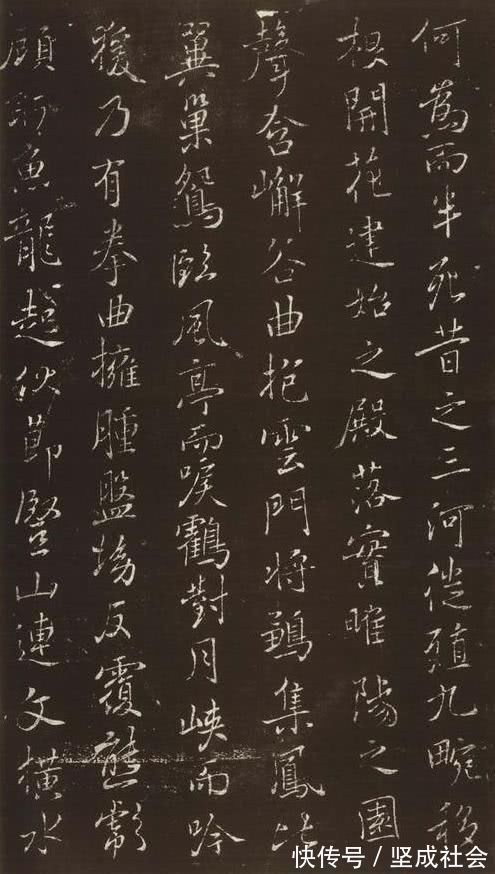 何爲而半死昔之三河徙殖九畹移
根開花建始之殿落實睢陽之園
聲含嶰谷曲抱雲門將鶵集鳳比
翼巢鴛臨風亭而唳鶴對月峽而吟
猨乃有拳曲擁腫盤坳反覆熊彪
顧盼魚龍起伏節豎山連文橫水
快传号 / 坚成社会